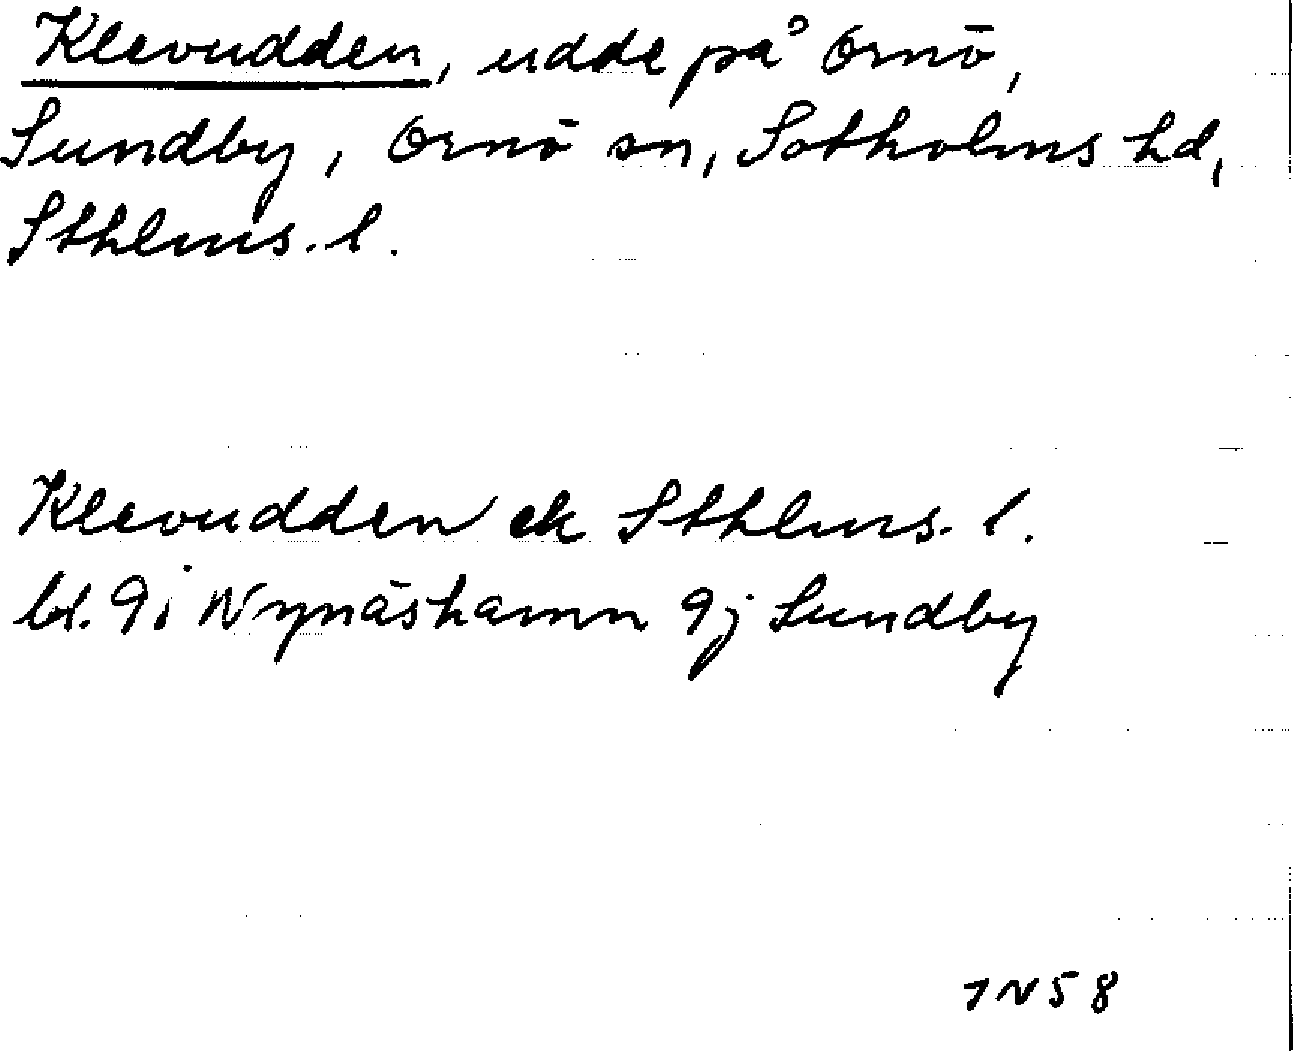 Klevudden, udde på Ornö,
Sundby, Ornö sn, Sotholms hd,
Sthlms. l.
Klevudden ek Sthlms. l.
bl. 9i Nynäshamn 9j Sundby
7N58